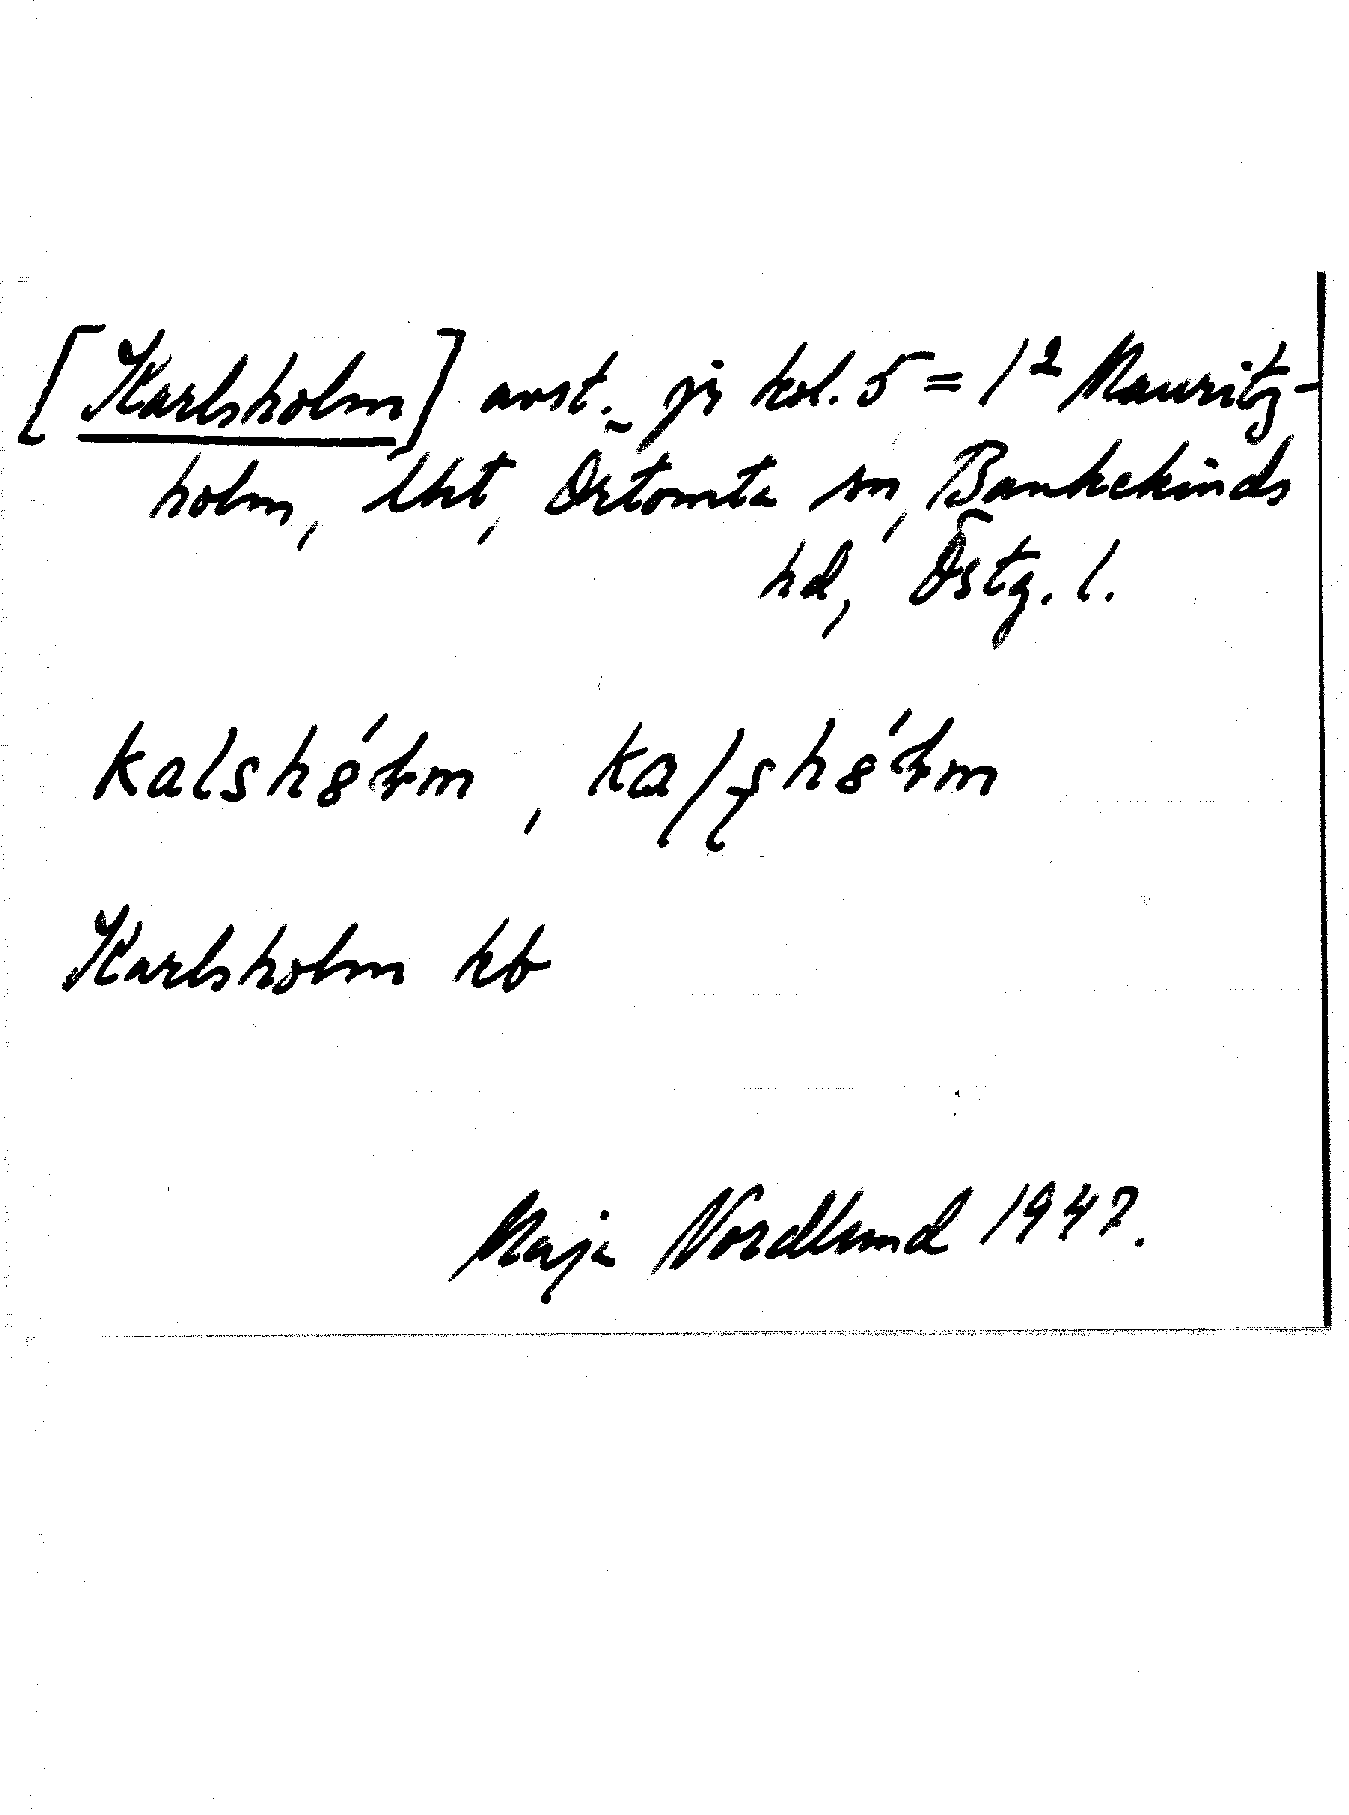 [Karlsholm] avst. jr kol. 5 = 1² Mauritz-
holm, lht, Örtomta sn, Bankekinds
hd, Östg. l.
Karlsholm kb
Maja Nordlund 1947.